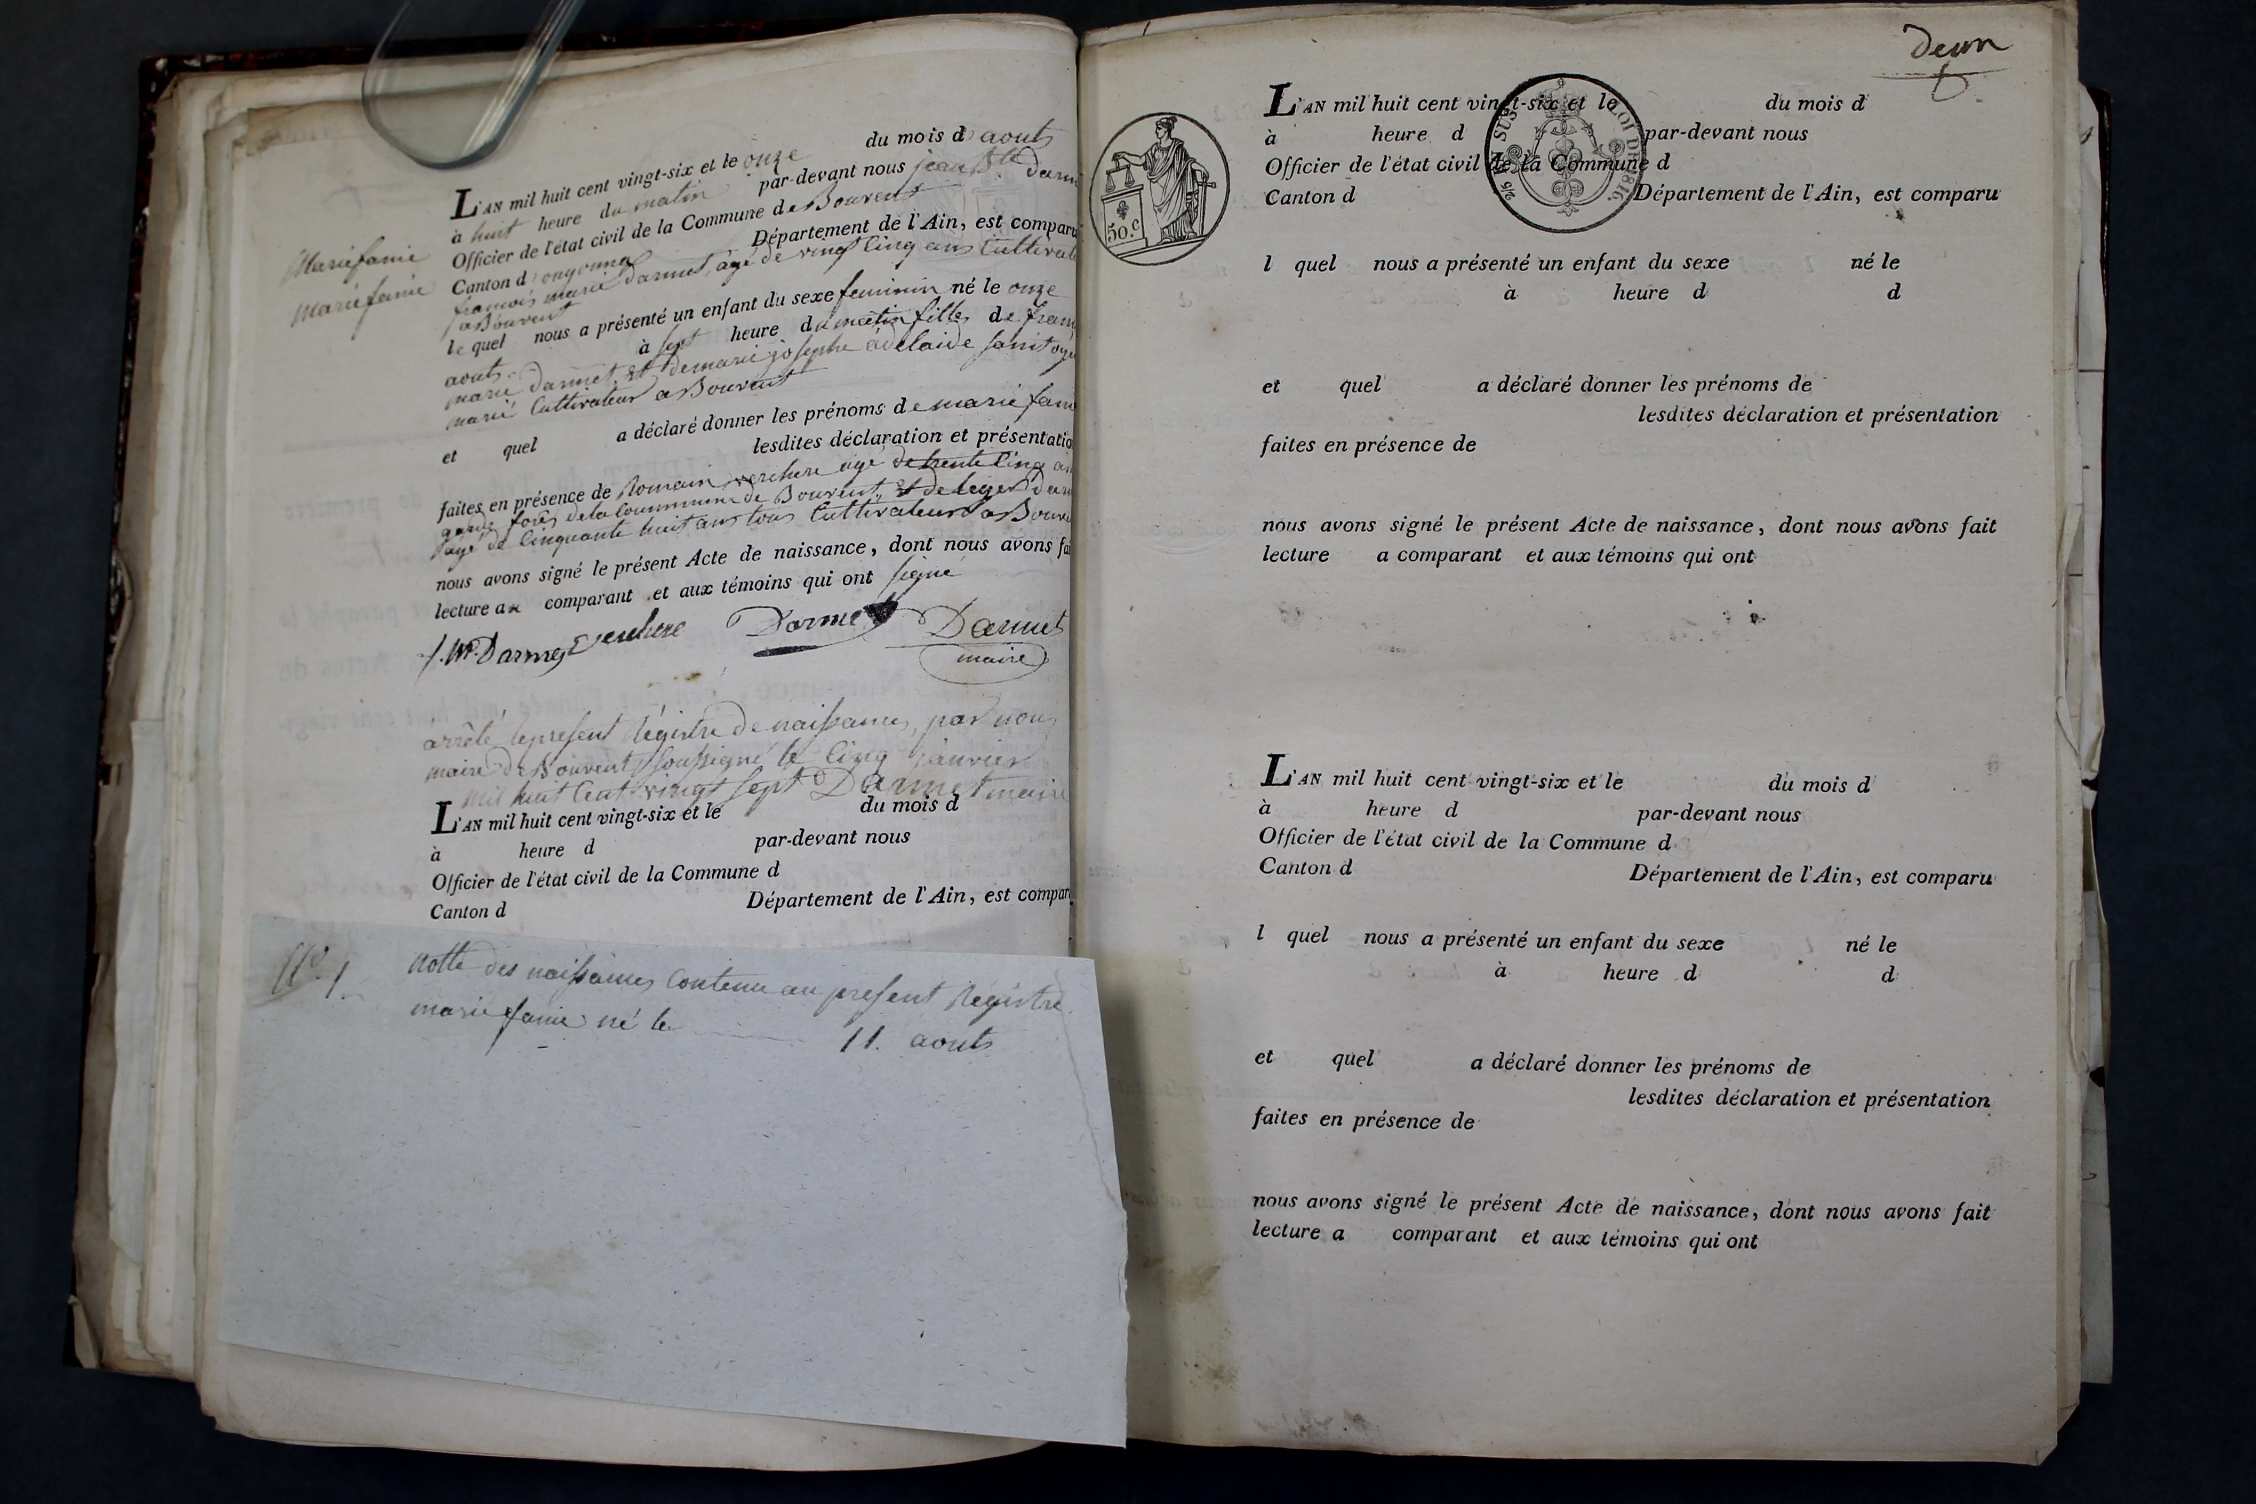 L'AN mil huit cent vingt-six et le onze du mois d aouts
à huit heure du matin par-devant nous jean Bte darm
Officier de l'état civil de la Commune de Bouvent
Canton d oyonnax Département de l'Ain, est comparu
francois marie darmet, âgé de vingt cinq ans Cultivat
a Bouvent
le quel nous a présenté un enfant du sexe feminin né le onze
aouts à sept heure du matin fille de fran
marie darmet et de marie josephe adelaide
marié Cultivateur a Bouvent
et quel a déclaré donner les prénoms de marie fani
lesdites déclaration et présentatio
faites en présence de Romain verchere agé de trente Cinq an
garde forês de la Commune de Bouvent, et de leger dar
agé de Cinquante huit ans tous Cultivateurs a Bouve
nous avons signé le présent Acte de naissance, dont nous avons fai
lecture au comparant et aux témoins qui ont signé
Marie fanie
marie fanie
f. M. Darmet verchere Darmet Darmet
maire
arrêté le present Régistre de naissances, par nous
maire de Bouvent soussigné le Cinq janvier
mil huit Cent vingt sept Darmet maire
L'AN mil huit cent vingt-six et le du mois d
à heure d par-devant nous
Officier de l'état civil de la Commune d
Canton d Département de l'Ain, est compar
No. 1. notte des naissances Contenu au present Régistre
marie fanie né le 11. aouts
deux
L'AN mil huit cent vingt-six et le du mois d
à heure d par-devant nous
Officier de l'état civil de la Commune d
Canton d Département de l'Ain, est comparu
50.c
LOI DE 1816.
l quel nous a présenté un enfant du sexe né le
à heure d d
et quel a déclaré donner les prénoms de
lesdites déclaration et présentation
faites en présence de
nous avons signé le présent Acte de naissance, dont nous avons fait
lecture a comparant et aux témoins qui ont
L'AN mil huit cent vingt-six et le du mois d
à heure d par-devant nous
Officier de l'état civil de la Commune d
Canton d Département de l'Ain, est comparu
l quel nous a présenté un enfant du sexe né le
à heure d d
et quel a déclaré donner les prénoms de
lesdites déclaration et présentation
faites en présence de
nous avons signé le présent Acte de naissance, dont nous avons fait
lecture a comparant et aux témoins qui ont